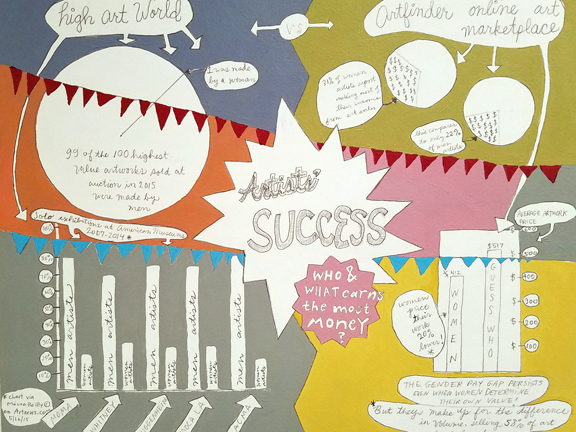 high art World
Artfinder online art
marketplace
V'S
1 was made
by a woman
99 of the 100 highest
value artworks sold at
auction in 2015
were made by
men
of women
artists report
making most of
their income
from art sales
this compares
to only 22%
of man
artists
Artists'
SUCCESS
WHO &
WHAT earns
the most
MONEY
?
Solo exhibitions at American Museums
2007-2014 *
men artists
women artists
men artists
women artists
men artists
women artists
men artists
women artists
men artists
women artists
MOMA
WHITNEY
GUGGENHEIM
LACMA
* chart via
Maura Reilly
on Artnews.com
5/26/15
AVERAGE ARTWORK
PRICE
$517
$412
WOMEN
GUESS WHO
$ 500
$ 400
$ 300
$ 200
$ 100
women
price
their
work
20%
lower *
THE GENDER PAY GAP PERSISTS
EVEN WHEN WOMEN DETERMINE
THEIR OWN VALUE!
* But they make up for the difference
in volume, selling 58% of art